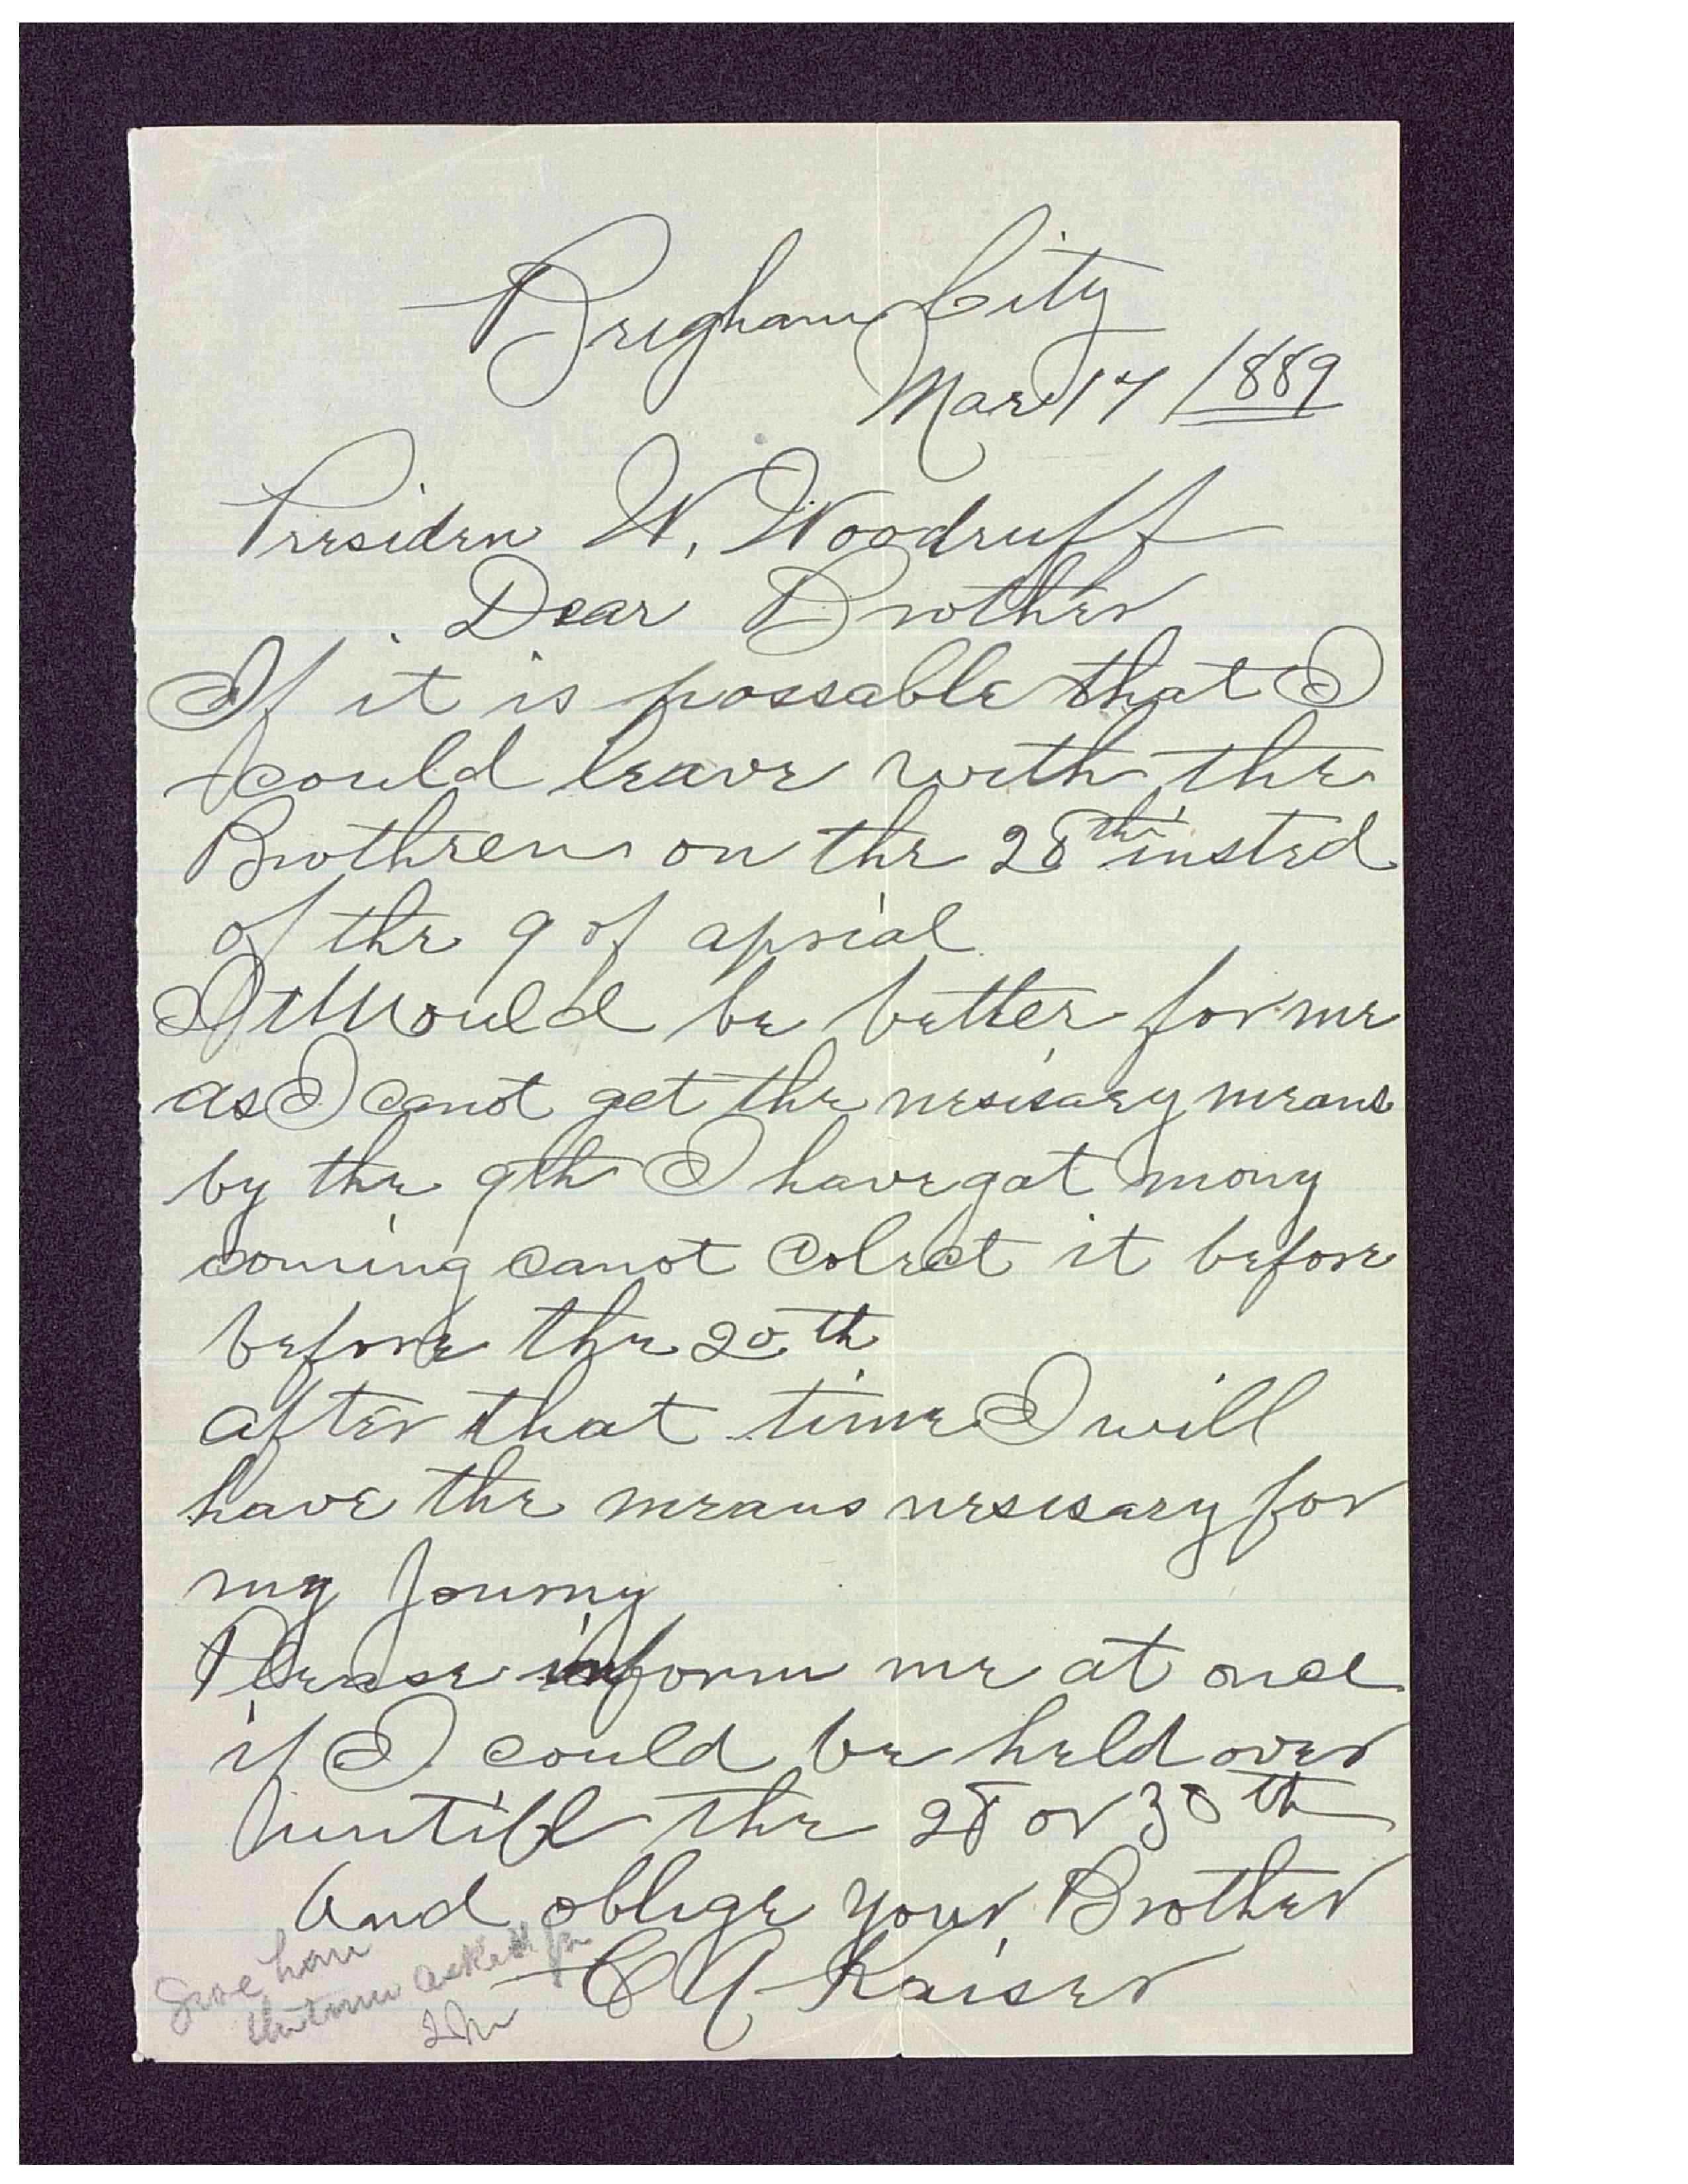 Brigham City
Mar 17 1889
Presiden W. Woodruff
Dear Brother
If it is possable that I
could leave with the
Brothren on the 28th insted
of the 9 of aprial
It Would be better for me
as I canot get the nesisary means
by the 9th I have gat mony
coming canot colect it before
before the 20th
after that time I will
have the means nesisary for
my Journy
Please inform me at once
if I could be held over
untill the 28 or 30th
and oblige your Brother
C A Kaiser
Give him
the time asked for